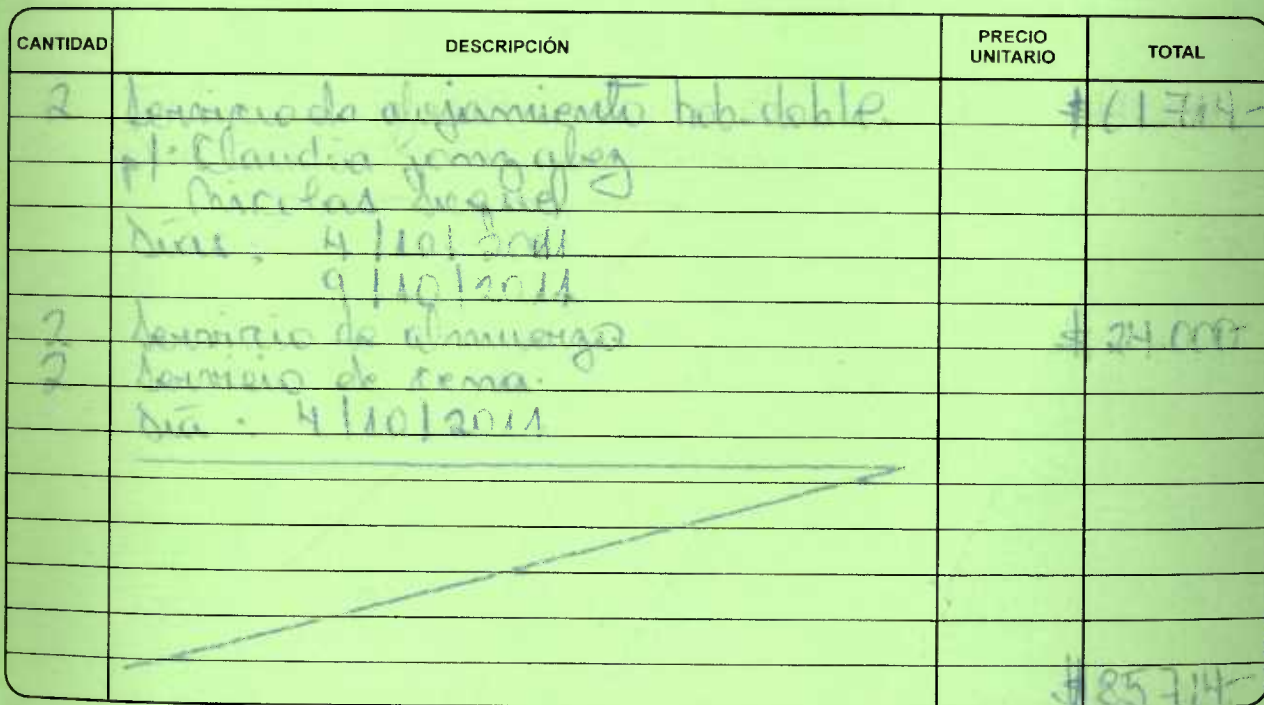 CANTIDAD DESCRIPCIÓN PRECIO UNITARIO TOTAL
2 Servicio de alojamiento hab. doble. $ 61.714-
p/: Claudia González
Nicolas
Días: 4/10/2011
9/10/2011
2 Servicio de almuerzo $ 24.000-
2 Servicio de cena.
Día: 4/10/2011
$ 85.714-